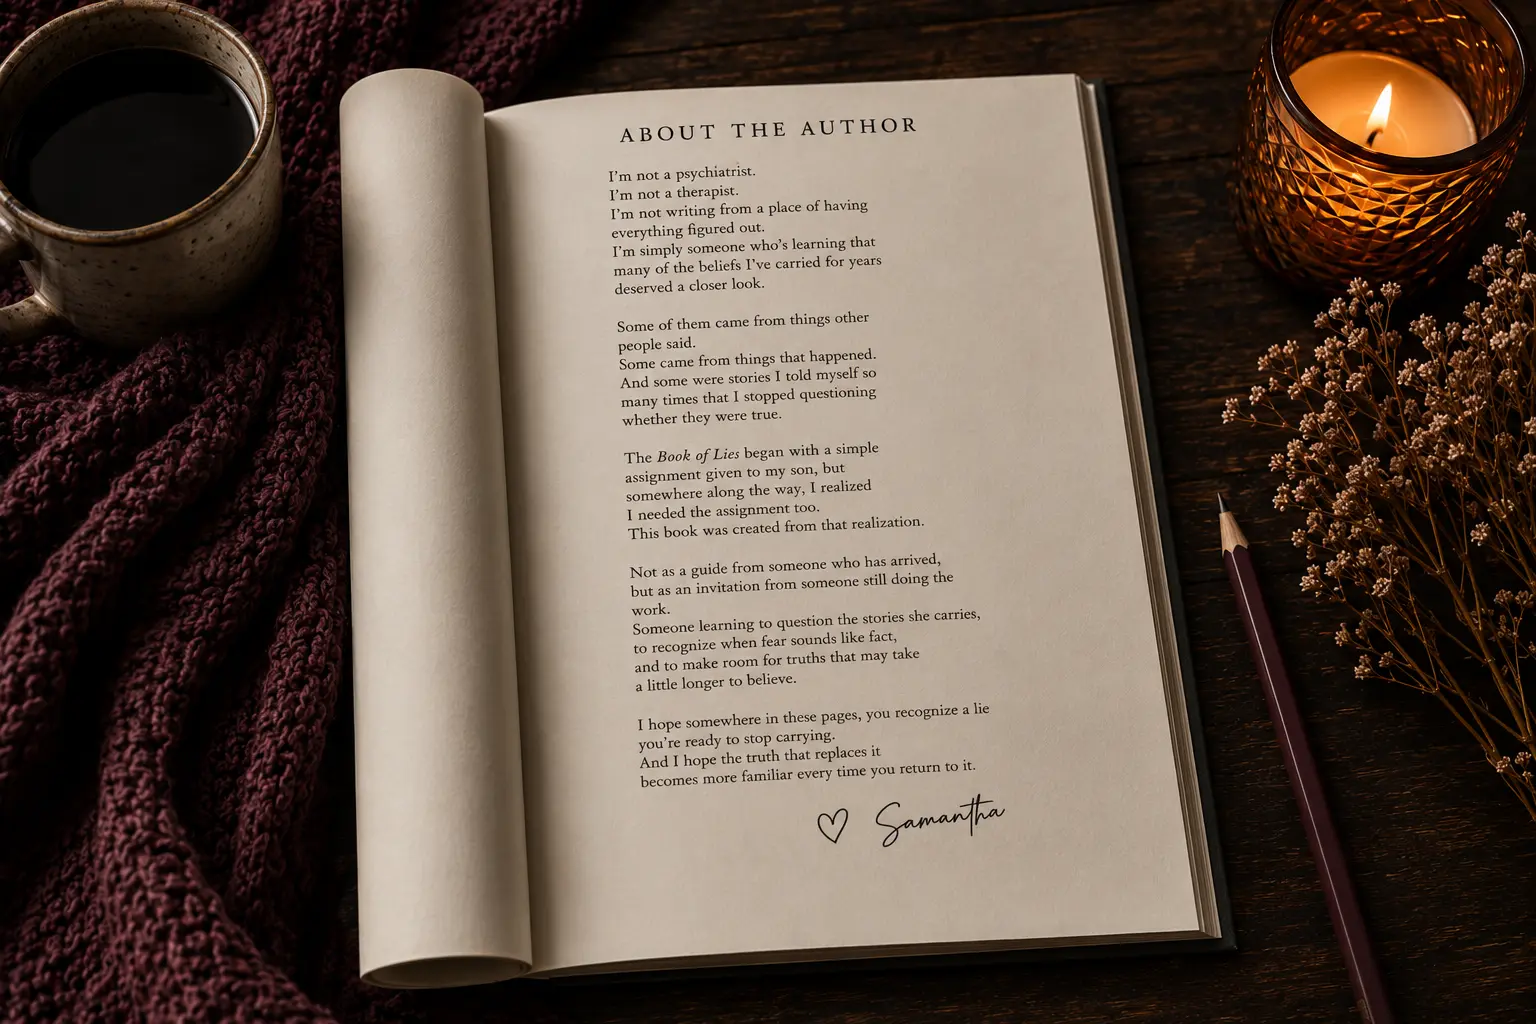 ABOUT THE AUTHOR
I'm not a psychiatrist.
I'm not a therapist.
I'm not writing from a place of having
everything figured out.
I'm simply someone who's learning that
many of the beliefs I've carried for years
deserved a closer look.
Some of them came from things other
people said.
Some came from things that happened.
And some were stories I told myself so
many times that I stopped questioning
whether they were true.
The Book of Lies began with a simple
assignment given to my son, but
somewhere along the way, I realized
I needed the assignment too.
This book was created from that realization.
Not as a guide from someone who has arrived,
but as an invitation from someone still doing the
work.
Someone learning to question the stories she carries,
to recognize when fear sounds like fact,
and to make room for truths that may take
a little longer to believe.
I hope somewhere in these pages, you recognize a lie
you're ready to stop carrying.
And I hope the truth that replaces it
becomes more familiar every time you return to it.
♡ Samantha